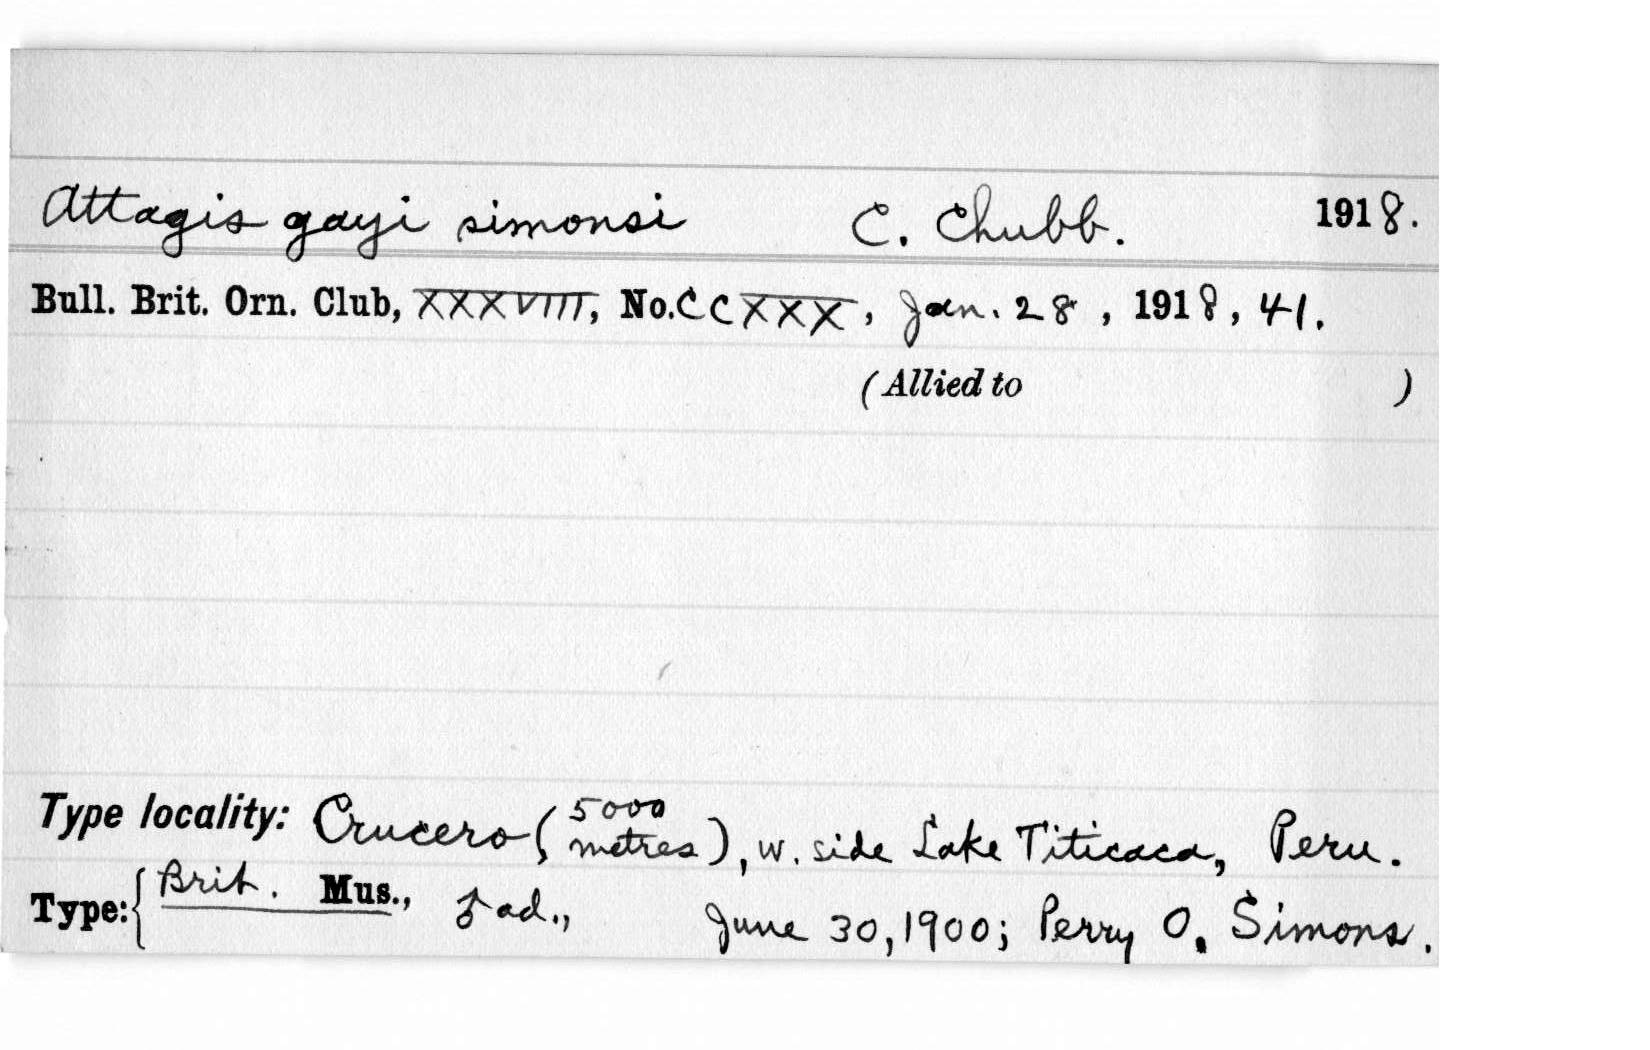 Attagis gayi simonsi C. Chubb. 1918.
Bull. Brit. Orn. Club, XXXVIII, No. CCXXX, Jan. 28, 1918, 41.
(Allied to )
Type locality: Crucero (5000 metres), w. side Lake Titicaca, Peru.
Type: { Brit. Mus., ad., June 30, 1900; Perry O. Simons.